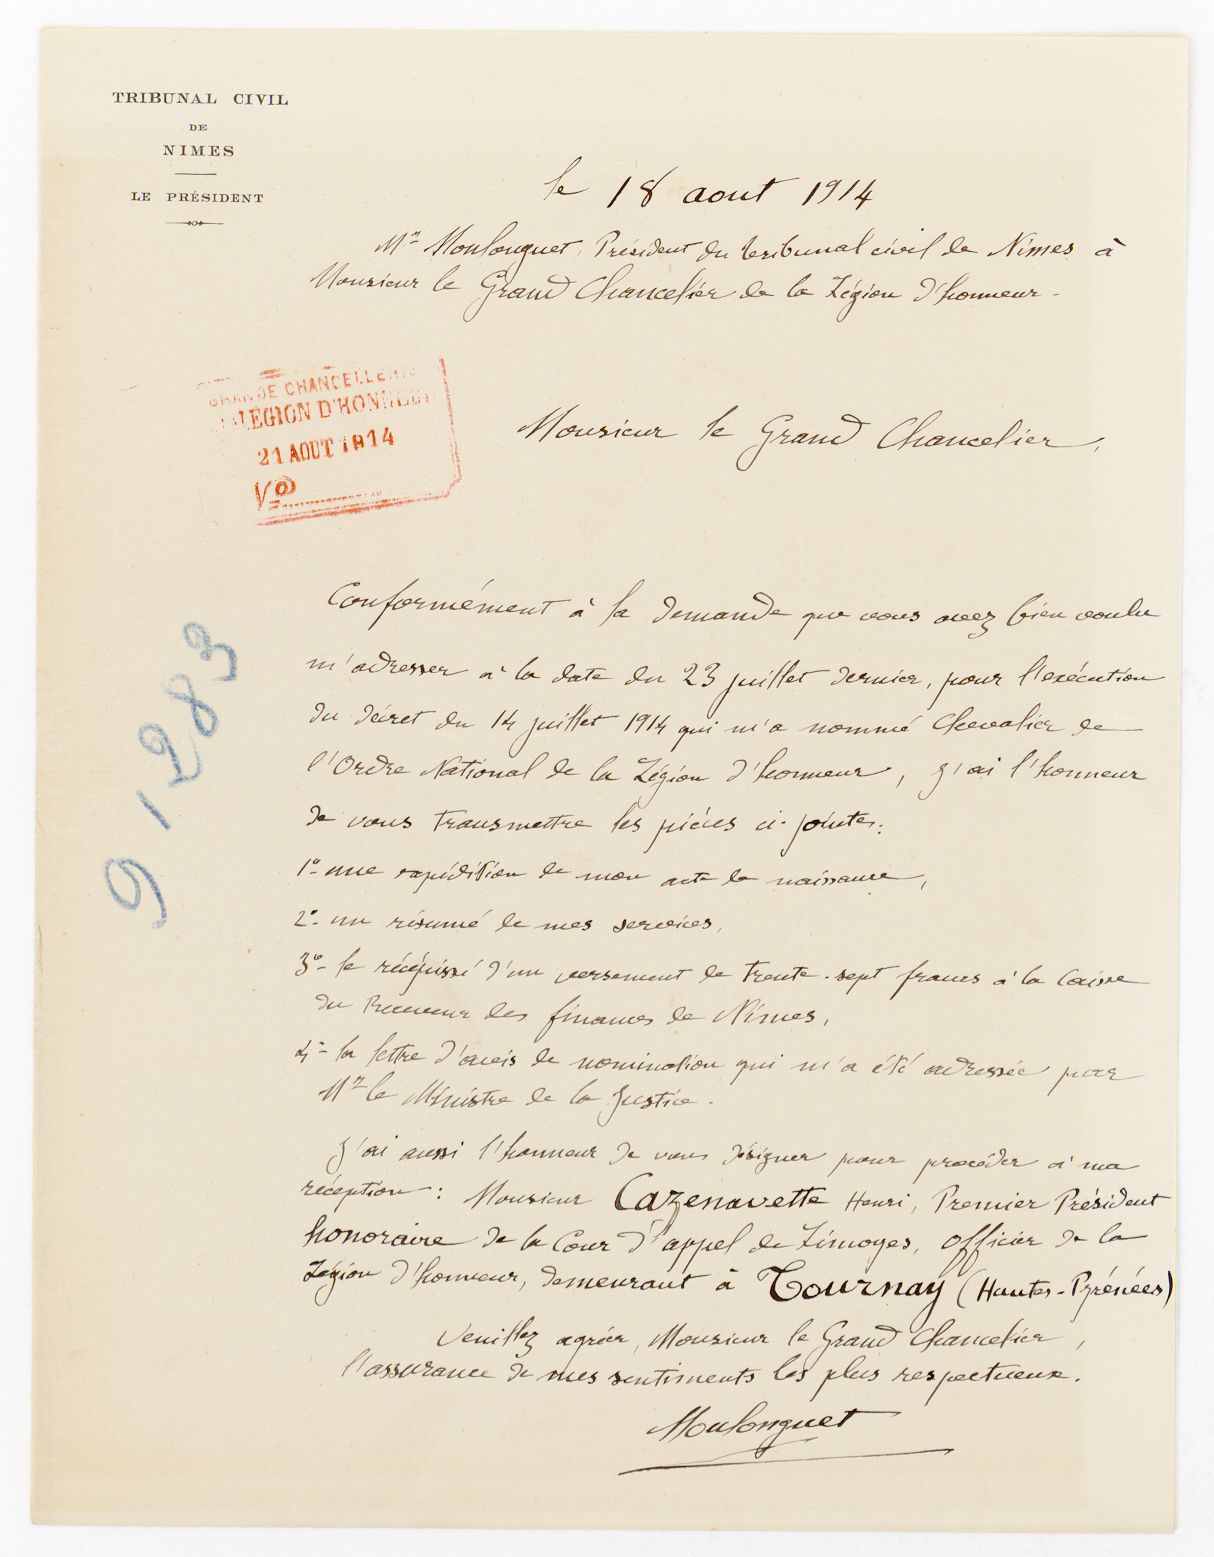 TRIBUNAL CIVIL
DE
NIMES
LE PRÉSIDENT
le 18 aout 1914
Mr Moulonguet, Président du tribunal civil de Nimes à
Monsieur le Grand Chancelier de la Légion d'honneur -
GRANDE CHANCELLERIE
LÉGION D'HONNEUR
21 AOUT 1914
Monsieur le Grand Chancelier,
Conformément à la demande que vous avez bien voulu
m'adresser à la date du 23 juillet dernier, pour l'exécution
du décret du 14 juillet 1914 qui m'a nommé Chevalier de
l'Ordre National de la Légion d'honneur, j'ai l'honneur
de vous transmettre les pièces ci-jointes:
1º- une expédition de mon acte de naissance,
2º- un résumé de mes services,
3º- le récépissé d'un versement de trente-sept francs à la Caisse
du Receveur des finances de Nimes,
4º- la lettre d'avis de nomination qui m'a été adressée par
Mr le Ministre de la Justice.
J'ai aussi l'honneur de vous désigner pour procéder à ma
réception: Monsieur Cazenavette Henri, Premier Président
honoraire de la Cour d'appel de Limoges, officier de la
Légion d'honneur, demeurant à Tournay (Hautes-Pyrénées)
Veuillez agréer, Monsieur le Grand Chancelier,
l'assurance de mes sentiments les plus respectueux.
Moulonguet
9,283